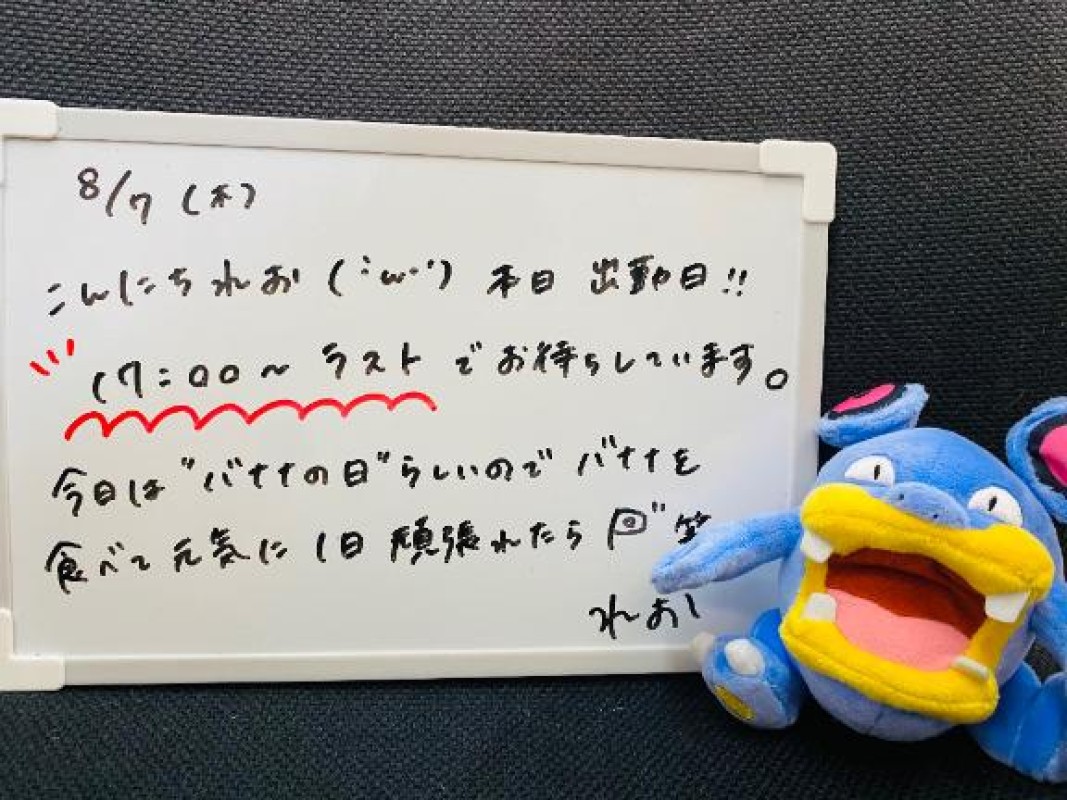 8/7(木)
こんにちれお(˙ω˙) 本日 出勤日!!
17:00～ラスト でお待ちしています。
今日は"バナナの日"らしいので バナナを
食べて 元気に 1日 頑張れたら 笑
れお